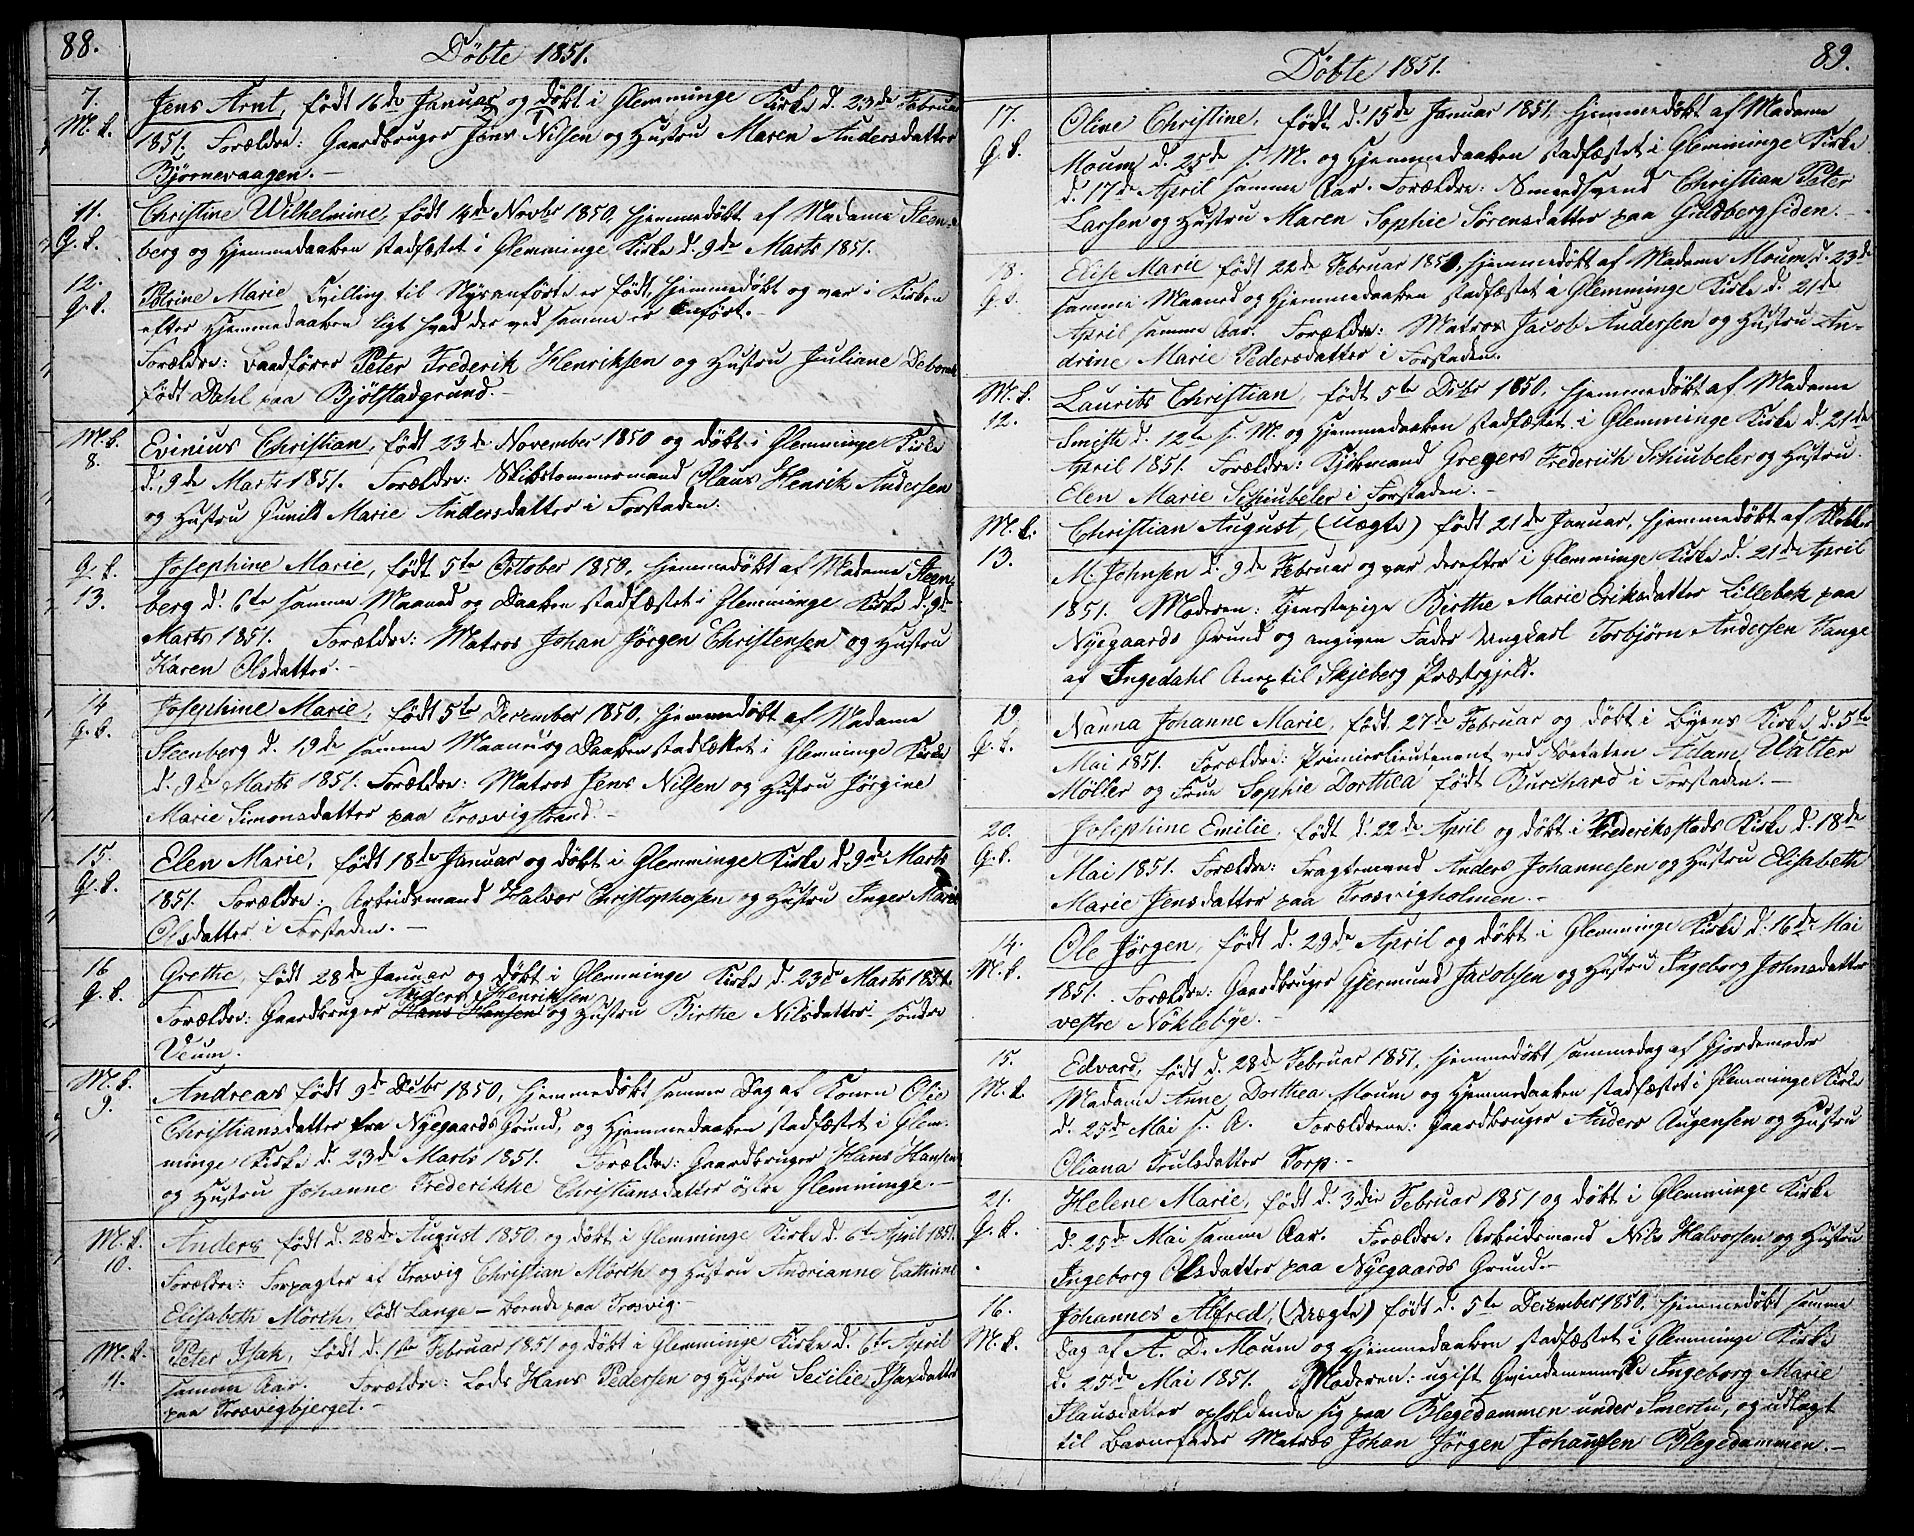 88.
Döbte 1851.
7.
M. k.
Jens Arnt, født 16de Januar og døbt i Glemminge Kirke d. 23de Februar
1851. Forældre: Gaardbruger Jens Nilsen og Hustru Maren Andersdatter
Bjørnevaagen.-
11.
Q. k.
Christine Wilhelmine, født 14de Novbr 1850, hjemmedøbt af Madame Steen-
berg og Hjemmedaaben stadfæstet i Glemminge Kirke d. 9de Marts 1851.
12.
Q. k.
Petrine Marie Tvilling til Nysanførte er født, hjemmedøbt og var i Kirken
efter Hjemmedaaben ligt hvad der ved samme er anført.-
Forældre: Baadfører Peter Frederik Henriksen og Hustru Juliane Debora
født Dahl paa Bjølstadgrund.-
M. k.
8.
Evinius Christian, født 23de November 1850 og døbt i Glemminge Kirke
d. 9de Marts 1851. Forældre: Skibstømmermand Claus Henrik Andersen
og Hustru Gunild Marie Andersdatter i Forstaden.
Q. k.
13.
Josephine Marie, født 5te October 1850, hjemmedøbt af Madame Steen-
berg d. 6te samme Maaned og Daaben stadfæstet i Glemminge Kirke d. 9de
Marts 1851. Forældre: Matros Johan Jørgen Christensen og Hustru
Karen Olsdatter.-
14
Q. k.
Josephine Marie, født 5te December 1850, hjemmedøbt af Madame
Steenberg d. 19de samme Maaned og Daaben stadfæstet i Glemminge Kirke
d. 9de Marts 1851. Forældre: Matros Jens Nilsen og Hustru Jørgine
Marie Simonsdatter paa Trosvigstrand.-
15.
Q. k.
Elen Marie, født 18de Januar og døbt i Glemminge Kirke d. 9de Marts
1851. Forældre: Arbeidsmand Halvor Christophersen og Hustru Inger Marie
Olsdatter i Forstaden.-
16
Q. k.
Grethe, født 28de Januar og døbt i Glemminge Kirke d. 23de Marts 1851.
Anders Henriksen
Forældre: Gaardbruger Hans Hansen og Hustru Birthe Nilsdatter søndre
Veum.
M. k.
9.
Andreas født 9de Decbr 1850, hjemmedøbt samme Dag af Konen Olie
Christiansdatter fra Nyegaards Grund, og Hjemmedaaben stadfæstet i Glem-
minge Kirke d. 23de Marts 1851. Forældre: Gaardbruger Hans Hansen
og Hustru Johanne Frederikke Christiansdatter østre Glemminge.-
M. k.
10.
Anders født d. 28de August 1850 og døbt i Glemminge Kirke d. 6te April 1851.
Forældre: Forpagter af Trosvig Christian Mörch og Hustru Andrianne Cathrine
Elisabeth Mörch, født Lange - boende paa Trosvig.-
M. k.
11.
Peter Isak, født d. 1ste Februar 1851 og døbt i Glemminge Kirke d. 6te April
samme Aar. Forældre: Lods Hans Pedersen og Hustru Secilie Isaxdatter
paa Trosvegbjerget.-
89.
Döbte 1851.
17.
Q. k.
Oline Christine, født d. 15de Januar 1851. hjemmedøbt af Madame
Moum d. 25de s. M. og Hjemmedaaben stadfæstet i Glemminge Kirke
d. 17de April samme Aar. Forældre: Smedsvend Christian Peter
Larsen og Hustru Maren Sophie Sørensdatter paa Guldbergsiden.-
18.
Q. k.
Elise Marie født 22de Februar 1851, hjemmedøbt af Madame Moum d. 23de
samme Maaned og Hjemmedaaben stadfæstet i Glemminge Kirke d. 21de
April samme Aar. Forældre: Matros Jacob Andersen og Hustru An-
drine Marie Pedersdatter i Forstaden.
M. k.
12.
Laurits Christian, født 5te Decbr 1850, hjemmedøbt af Madame
Smith d. 12te s. M. og Hjemmedaaben stadfæstet i Glemminge Kirke d. 21de
April 1851. Forældre: Kjøbmand Gregers Frederich Schiubeler og Hustru
Elen Marie Schiubeler i Forstaden.-
M. k.
13.
Christian August, (Uægte) født 21de Januar, hjemmedøbt af Klokker
M. Johnsen d. 9de Februar og var derefter i Glemminge Kirke d. 21de April
1851. Moderen: Tjenestepige Birthe Marie Eriksdatter Lillebek paa
Nyegaards Grund og angiven Fader Ungkarl Torbjørn Andersen Tange
af Ingedahl Anex til Skjeberg Præstegjeld.
19
Q. k.
Nanna Johanne Marie, født 27de Februar og døbt i Byens Kirke d. 5te
Mai 1851. Forældre: Premierlieutenant ved Søetaten Adam Walter
Möller og Frue Sophie Dorthea født Burchard i Forstaden.-
20.
Q. k.
Josephine Emilie, født d. 22de April og døbt i Frederiksstads Kirke d. 18de
Mai 1851. Forældre: Fragtemand Anders Johannesen og Hustru Elisabeth
Marie Jensdatter paa Trosvigholmen.-
14.
M. k.
Ole Jørgen, født d. 29de April og døbt i Glemminge Kirke d. 16de Mai
1851. Forældre: Gaardbruger Gjermund Jacobsen og Hustru Ingeborg Johnsdatter
vestre Nöklebye.-
15.
M. k.
Edvard, født d. 28de Februar 1851, hjemmedøbt sammedag af Gjordemoder
Madame Anne Dorthea Moum og Hjemmedaaben stadfæstet i Glemminge Kirke
d. 25de Mai s. A. Forældrene: Gaardbruger Anders Augensen og Hustru
Oliana Trulsdatter Torp.-
21.
Q. k.
Helene Marie, født d. 3die Februar 1851 og døbt i Glemminge Kirke
d. 25de Mai samme Aar. Forældre: Arbeidsmand Nils Halvorsen og Hustru
Ingeborg Olsdatter paa Nyegaards Grund-
16.
M. k.
Johannes Alfred, (Uægte) født d. 5te December 1850. hjemmedøbt samme
Dag af A. D. Moum og Hjemmedaaben stadfæstet i Glemminge Kirke
d. 25de Mai 1851. Moderen: ugift Qvindemenneske Ingeborg Marie
Klausdatter opholdende sig paa Blegedammen under Smertu, og udlagt
til Barnefader Matros Johan Jørgen Johansen Blegedammen.-